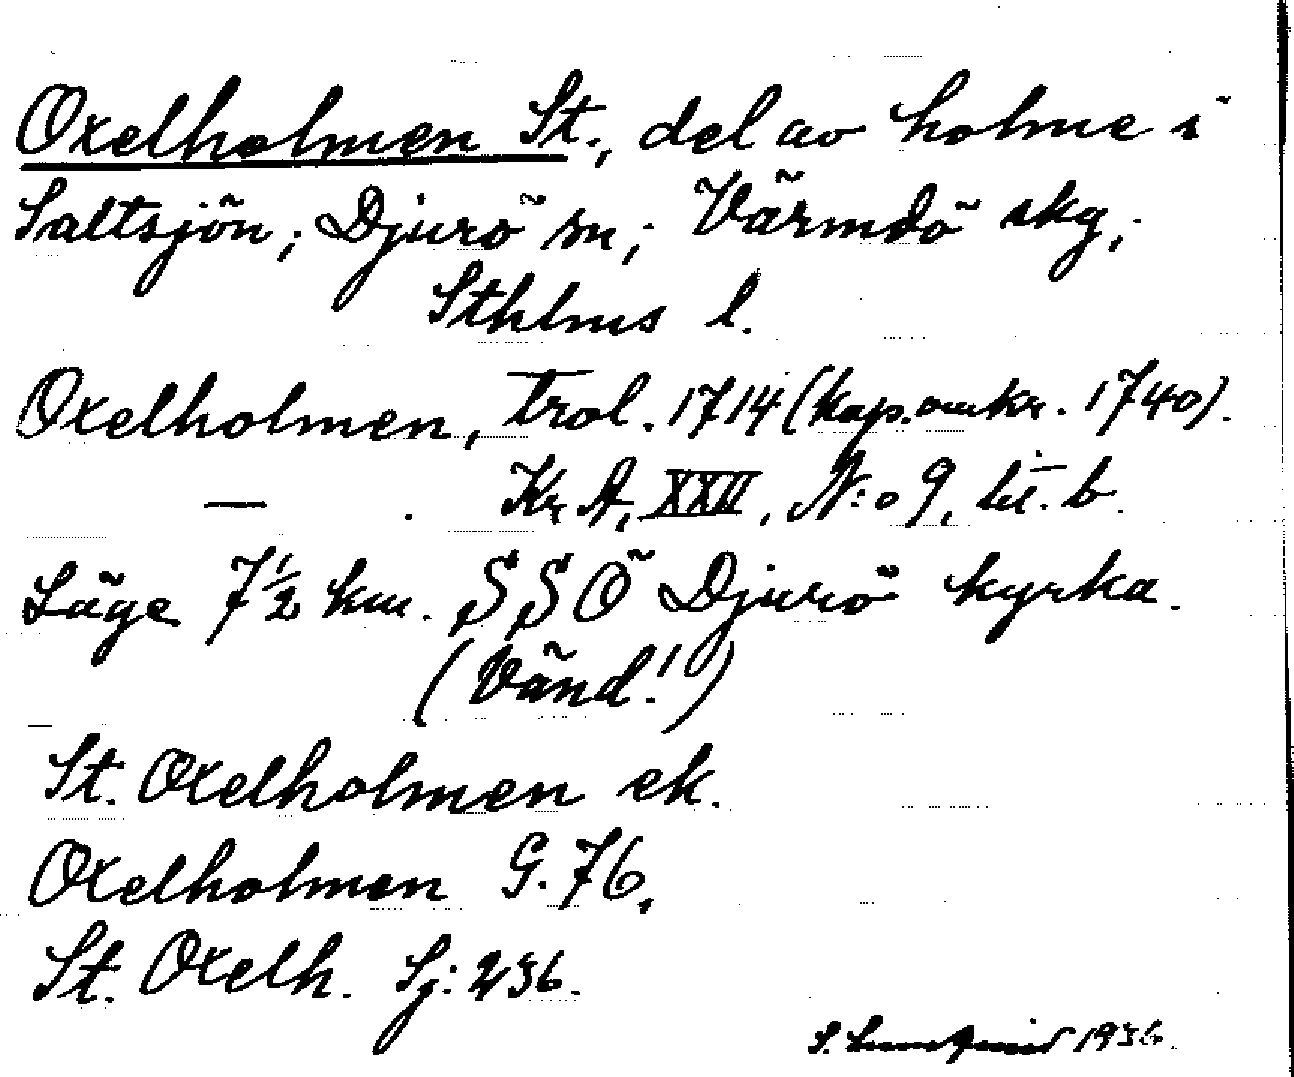 Oxelholmen St., del av holme i
Saltsjön; Djurö sn; Värmdö skg;
Sthlms l.
Oxelholmen, trol. 1714 (kop. omkr. 1740).
— . Kr. A, XXII, N:o 9, lit. b.
Läge 7 1/2 km. SSÖ Djurö kyrka.
(Vänd!)
St. Oxelholmen ek.
Oxelholmen G. 76,
St. Oxelh. Sj: 236.
S. 1936.